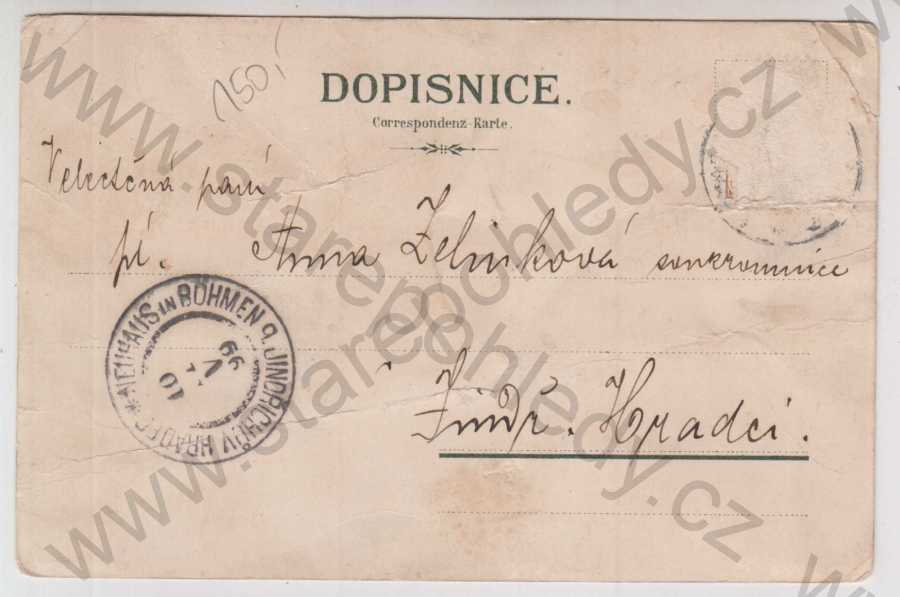 150,-
DOPISNICE.
Correspondenz-Karte.
Velectěná paní
pí. Anna Zelinková soukromnice
Jindř. Hradci.
NEUHAUS IN BÖHMEN JINDŘICHŮV HRADEC
10
V
99
www.starepohledy.cz
www.starepohledy.cz